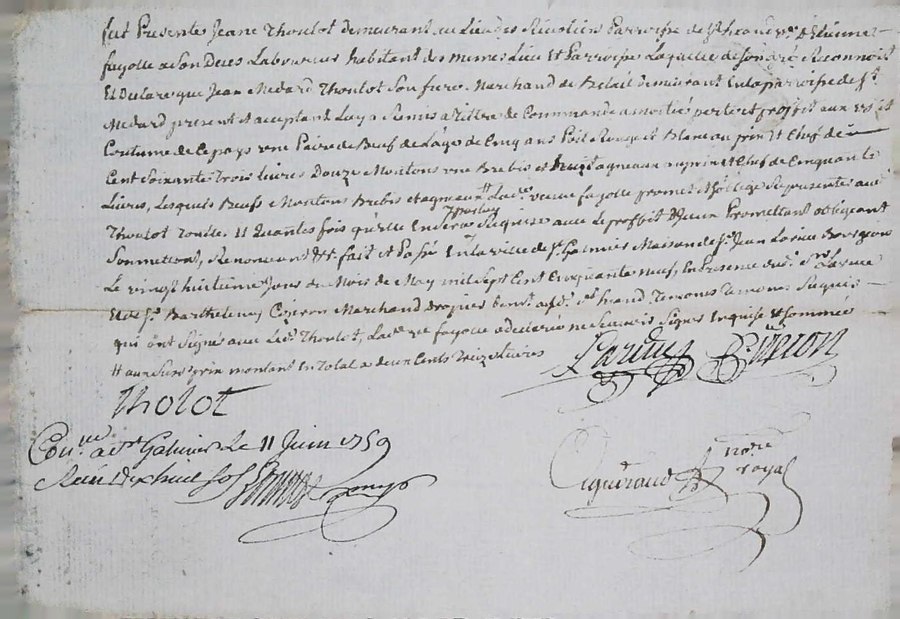 fut Presente Jeane Thoulot demeurant au Lieu des Rivoliers Parroisse de St heand ve. D'Etienne
fayolle a Son Deces Laboureur habitant des memes Lieu Et Parroisse Laquelle de Son gré Reconnoit
Et Declare que Jean Medard Thoulot Son frere Marchand de Betail demeurant En la parroisse de St.
Medard present & acceptant Luy a Remis a Tittre de Commande a moitié perte et proffit aux us et
Coutume de Ce pays une Paire de Bœuf de L'age de Cinq ans Poil Rouge et Blanc au prin Et Chef de
Cent Soixante Trois Livres Douze Moutons une Brebis et huit agneaux au prin et Chef de Cinquante
Livres, Lesquels Bœufs Moutons Brebis et agneaux # Lade. veuve fayolle promet & s'oblige Representer aud.
Thoulot Toutte fois & Quantes fois qu'elle En Sera Requise avec Le proffit d'Iceux Promettant obligeant
Soumettant, Renonceant &c fait et Passé En La ville de St. Galmier Maison de Sr. Jean Larue Bourgeois
Le vingt huitieme Jour du Mois de May mil Sept Cent Cinquante neuf, En Presence dud. Sr. Larue
Et de Sr. Barthelemy Marchand Drapier aud. St heand Temoins Requis
qui ont Signé avec Led. Thoulot, Lade. ve fayolle a declaré ne Scavoir Signer Enquise Et Sommée
# au Susd. prin montant En Total a deux Cents Treize Livres
Larue
Tholot
Con.lle a St Galmier Le 11 Juin 1759
Reçu Dix huit Sols
Aguiraud nore royal